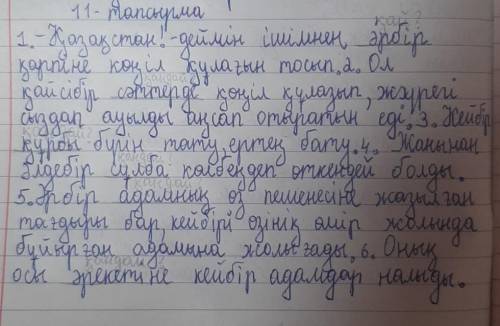 11- тапсырма
қай?
1.-Қазақстан!-деймін ішімнен әрбір
қарпіне көңіл құлағын тосып.2. Ол
қандай?
қайсібір сәттерде көңіл құлазып, жүрегі
сыздап ауылды аңсап отыратын еді.3. Кейбір
қандай?
құрбы бүгін тату ертең бату.4. Жанынан
қандай?
әлдебір сұлба көлбеңдеп өткендей болды.
қандай?
5.Әрбір адамның өз пешенесіне жазылған
тағдыры бар, кейбірі өзінің өмір жолында
бұйырған адамына жолығады.6. Оның
қандай?
осы әрекетіне кейбір адамдар налыды.